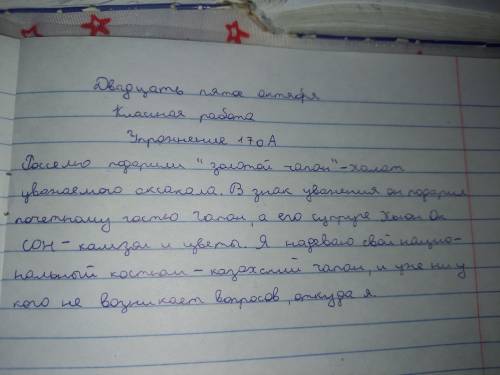 Двадцать пятое октября
Класная работа
Упражнение 170А
подарили "золотой чапан"-халат
уважаемого аксакала. В знак уважения он подарил
почетному гостю чапан, а его супруге Хюн Ок
СОН - камзол и цветы. Я надеваю свой нацио-
нальный костюм - казахский чапан, и уже ни у
кого не возникает вопросов, откуда я.